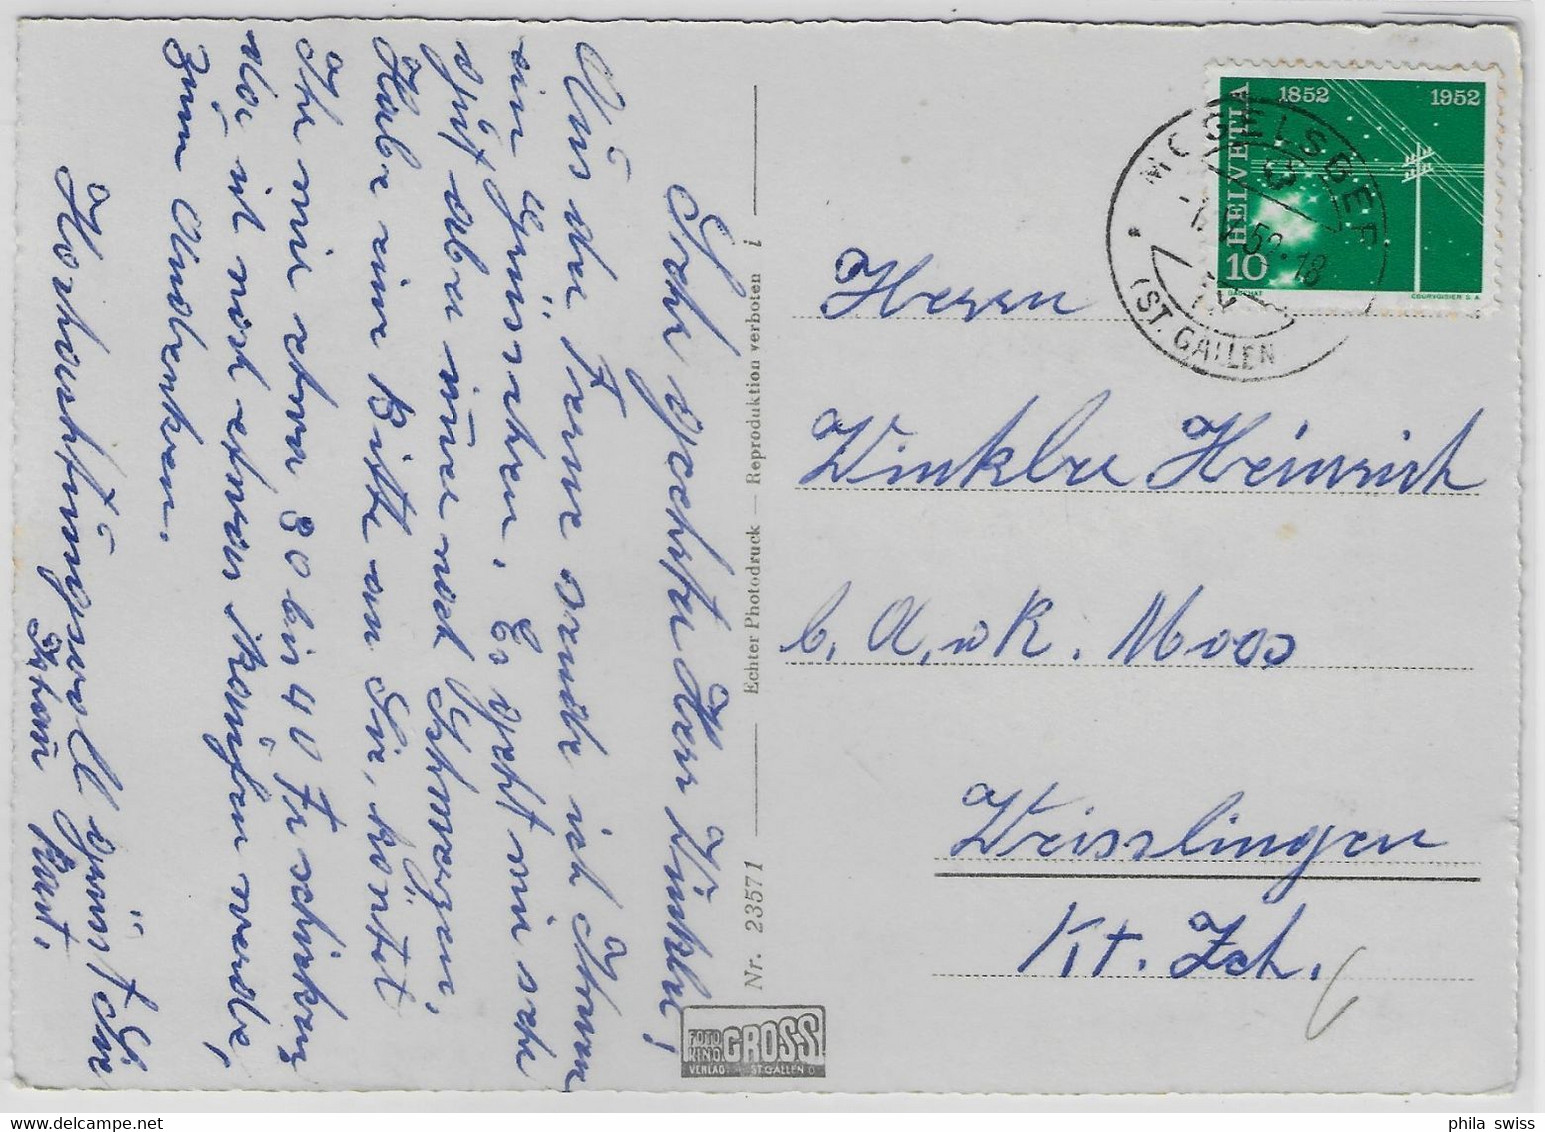 Sehr geehrter Herr Winkler!
Aus der Ferne sende ich Ihnen
ein Grüsschen. Es geht mir sehr
gut aber immer noch Schmerzen,
Habe eine Bitte an Sie, könntet
Ihr mir etwa 30 bis 40 Fr schicken
das ich noch etwas kaufen werde,
zum Andenken.
Hochachtungsvoll grüsst Sie
Karl.
Nr. 23571
Echter Photodruck — Reproduktion verboten
i
FOTO KINO GROSS
VERLAG ST GALLEN O
HELVETIA
1852 1952
10
COURVOISIER S.A
MOGELSBERG
(ST. GALLEN)
Herrn
Winkler Heinrich
b. A. Moos
Weisslingen
Kt. Zch.
phila swiss